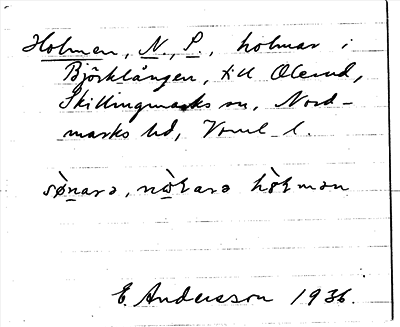 Holmen, N., S., holmar i
Björklången, till Olerud,
Skillingmarks sn, Nord-
marks hd, Vrml. l.
sö̀narə, nö̀ɫarə hö̀ɫmən
E. Andersson 1936.